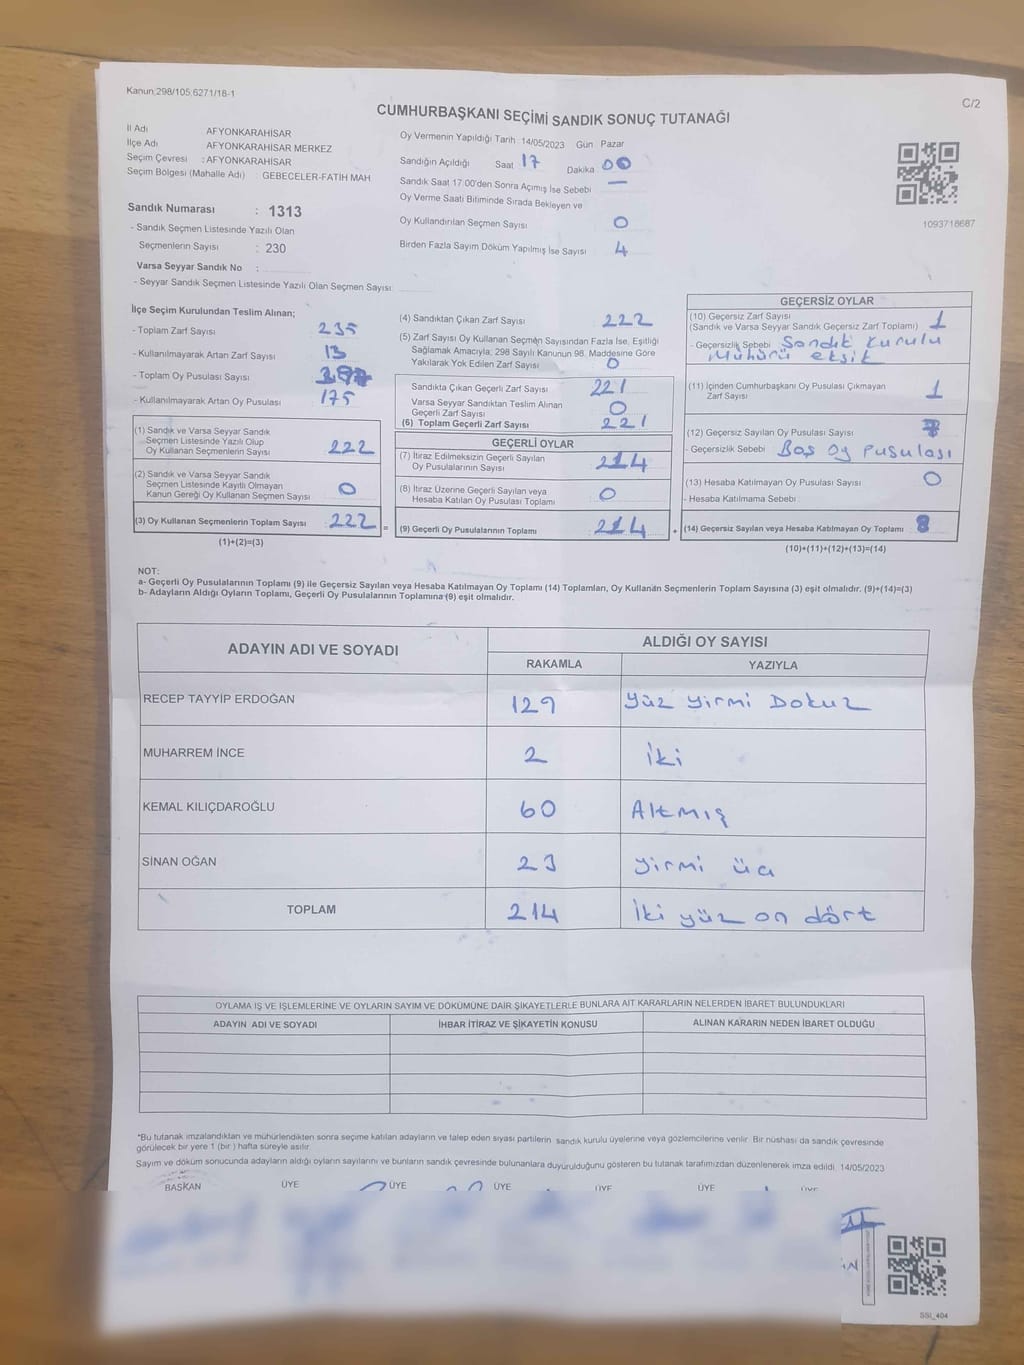 Kanun:298/105;6271/18-1
C/2
CUMHURBAŞKANI SEÇİMİ SANDIK SONUÇ TUTANAĞI
İl Adı AFYONKARAHİSAR
İlçe Adı AFYONKARAHİSAR MERKEZ
Seçim Çevresi : AFYONKARAHİSAR
Seçim Bölgesi (Mahalle Adı) : GEBECELER-FATİH MAH.
Sandık Numarası : 1313
- Sandık Seçmen Listesinde Yazılı Olan
Seçmenlerin Sayısı : 230
Varsa Seyyar Sandık No :
- Seyyar Sandık Seçmen Listesinde Yazılı Olan Seçmen Sayısı:
Oy Vermenin Yapıldığı Tarih :14/05/2023 Gün Pazar
Sandığın Açıldığı Saat 17 Dakika 00
Sandık Saat 17:00'den Sonra Açımış İse Sebebi —
Oy Verme Saati Bitiminde Sırada Bekleyen ve
Oy Kullandırılan Seçmen Sayısı 0
Birden Fazla Sayım Döküm Yapılmış İse Sayısı 4
1093718687
İlçe Seçim Kurulundan Teslim Alınan;
- Toplam Zarf Sayısı 235
- Kullanılmayarak Artan Zarf Sayısı 13
- Toplam Oy Pusulası Sayısı
- Kullanılmayarak Artan Oy Pusulası 175
(1) Sandık ve Varsa Seyyar Sandık
Seçmen Listesinde Yazılı Olup
Oy Kullanan Seçmenlerin Sayısı 222
(2) Sandık ve Varsa Seyyar Sandık
Seçmen Listesinde Kayıtlı Olmayan
Kanun Gereği Oy Kullanan Seçmen Sayısı 0
(3) Oy Kullanan Seçmenlerin Toplam Sayısı : 222 =
(1)+(2)=(3)
(4) Sandıktan Çıkan Zarf Sayısı 222
(5) Zarf Sayısı Oy Kullanan Seçmen Sayısından Fazla İse, Eşitliği
Sağlamak Amacıyla; 298 Sayılı Kanunun 98. Maddesine Göre
Yakılarak Yok Edilen Zarf Sayısı 0
Sandıkta Çıkan Geçerli Zarf Sayısı 221
Varsa Seyyar Sandıktan Teslim Alınan
Geçerli Zarf Sayısı 0
(6) Toplam Geçerli Zarf Sayısı 221
GEÇERLİ OYLAR
(7) İtiraz Edilmeksizin Geçerli Sayılan
Oy Pusulalarının Sayısı 214
(8) İtiraz Üzerine Geçerli Sayılan veya
Hesaba Katılan Oy Pusulası Toplamı 0
(9) Geçerli Oy Pusulalarının Toplamı 214 +
GEÇERSİZ OYLAR
(10) Geçersiz Zarf Sayısı
(Sandık ve Varsa Seyyar Sandık Geçersiz Zarf Toplamı) 1
- Geçersizlik Sebebi Sandık Kurulu
Mühürü eksik
(11) İçinden Cumhurbaşkanı Oy Pusulası Çıkmayan
Zarf Sayısı 1
(12) Geçersiz Sayılan Oy Pusulası Sayısı
- Geçersizlik Sebebi : Boş Oy Pusulası
(13) Hesaba Katılmayan Oy Pusulası Sayısı 0
- Hesaba Katılmama Sebebi :
(14) Geçersiz Sayılan veya Hesaba Katılmayan Oy Toplamı : 8
(10)+(11)+(12)+(13)=(14)
NOT:
a- Geçerli Oy Pusulalarının Toplamı (9) ile Geçersiz Sayılan veya Hesaba Katılmayan Oy Toplamı (14) Toplamları, Oy Kullanan Seçmenlerin Toplam Sayısına (3) eşit olmalıdır. (9)+(14)=(3)
b- Adayların Aldığı Oyların Toplamı, Geçerli Oy Pusulalarının Toplamına (9) eşit olmalıdır.
ADAYIN ADI VE SOYADI
ALDIĞI OY SAYISI
RAKAMLA YAZIYLA
RECEP TAYYİP ERDOĞAN 129 Yüz Yirmi Dokuz
MUHARREM İNCE 2 İki
KEMAL KILIÇDAROĞLU 60 Altmış
SİNAN OĞAN 23 Yirmi üç
TOPLAM 214 İki yüz on dört
OYLAMA İŞ VE İŞLEMLERİNE VE OYLARIN SAYIM VE DÖKÜMÜNE DAİR ŞİKAYETLERLE BUNLARA AİT KARARLARIN NELERDEN İBARET BULUNDUKLARI
ADAYIN ADI VE SOYADI İHBAR İTİRAZ VE ŞİKAYETİN KONUSU ALINAN KARARIN NEDEN İBARET OLDUĞU
*Bu tutanak imzalandıktan ve mühürlendikten sonra seçime katılan adayların ve talep eden siyasi partilerin sandık kurulu üyelerine veya gözlemcilerine verilir. Bir nüshası da sandık çevresinde
görülecek bir yere 1 (bir ) hafta süreyle asılır.
Sayım ve döküm sonucunda adayların aldığı oyların sayılarını ve bunların sandık çevresinde bulunanlara duyurulduğunu gösteren bu tutanak tarafımızdan düzenlenerek imza edildi. 14/05/2023
BAŞKAN ÜYE ÜYE ÜYE ÜYE ÜYE ÜYE
SSI_404